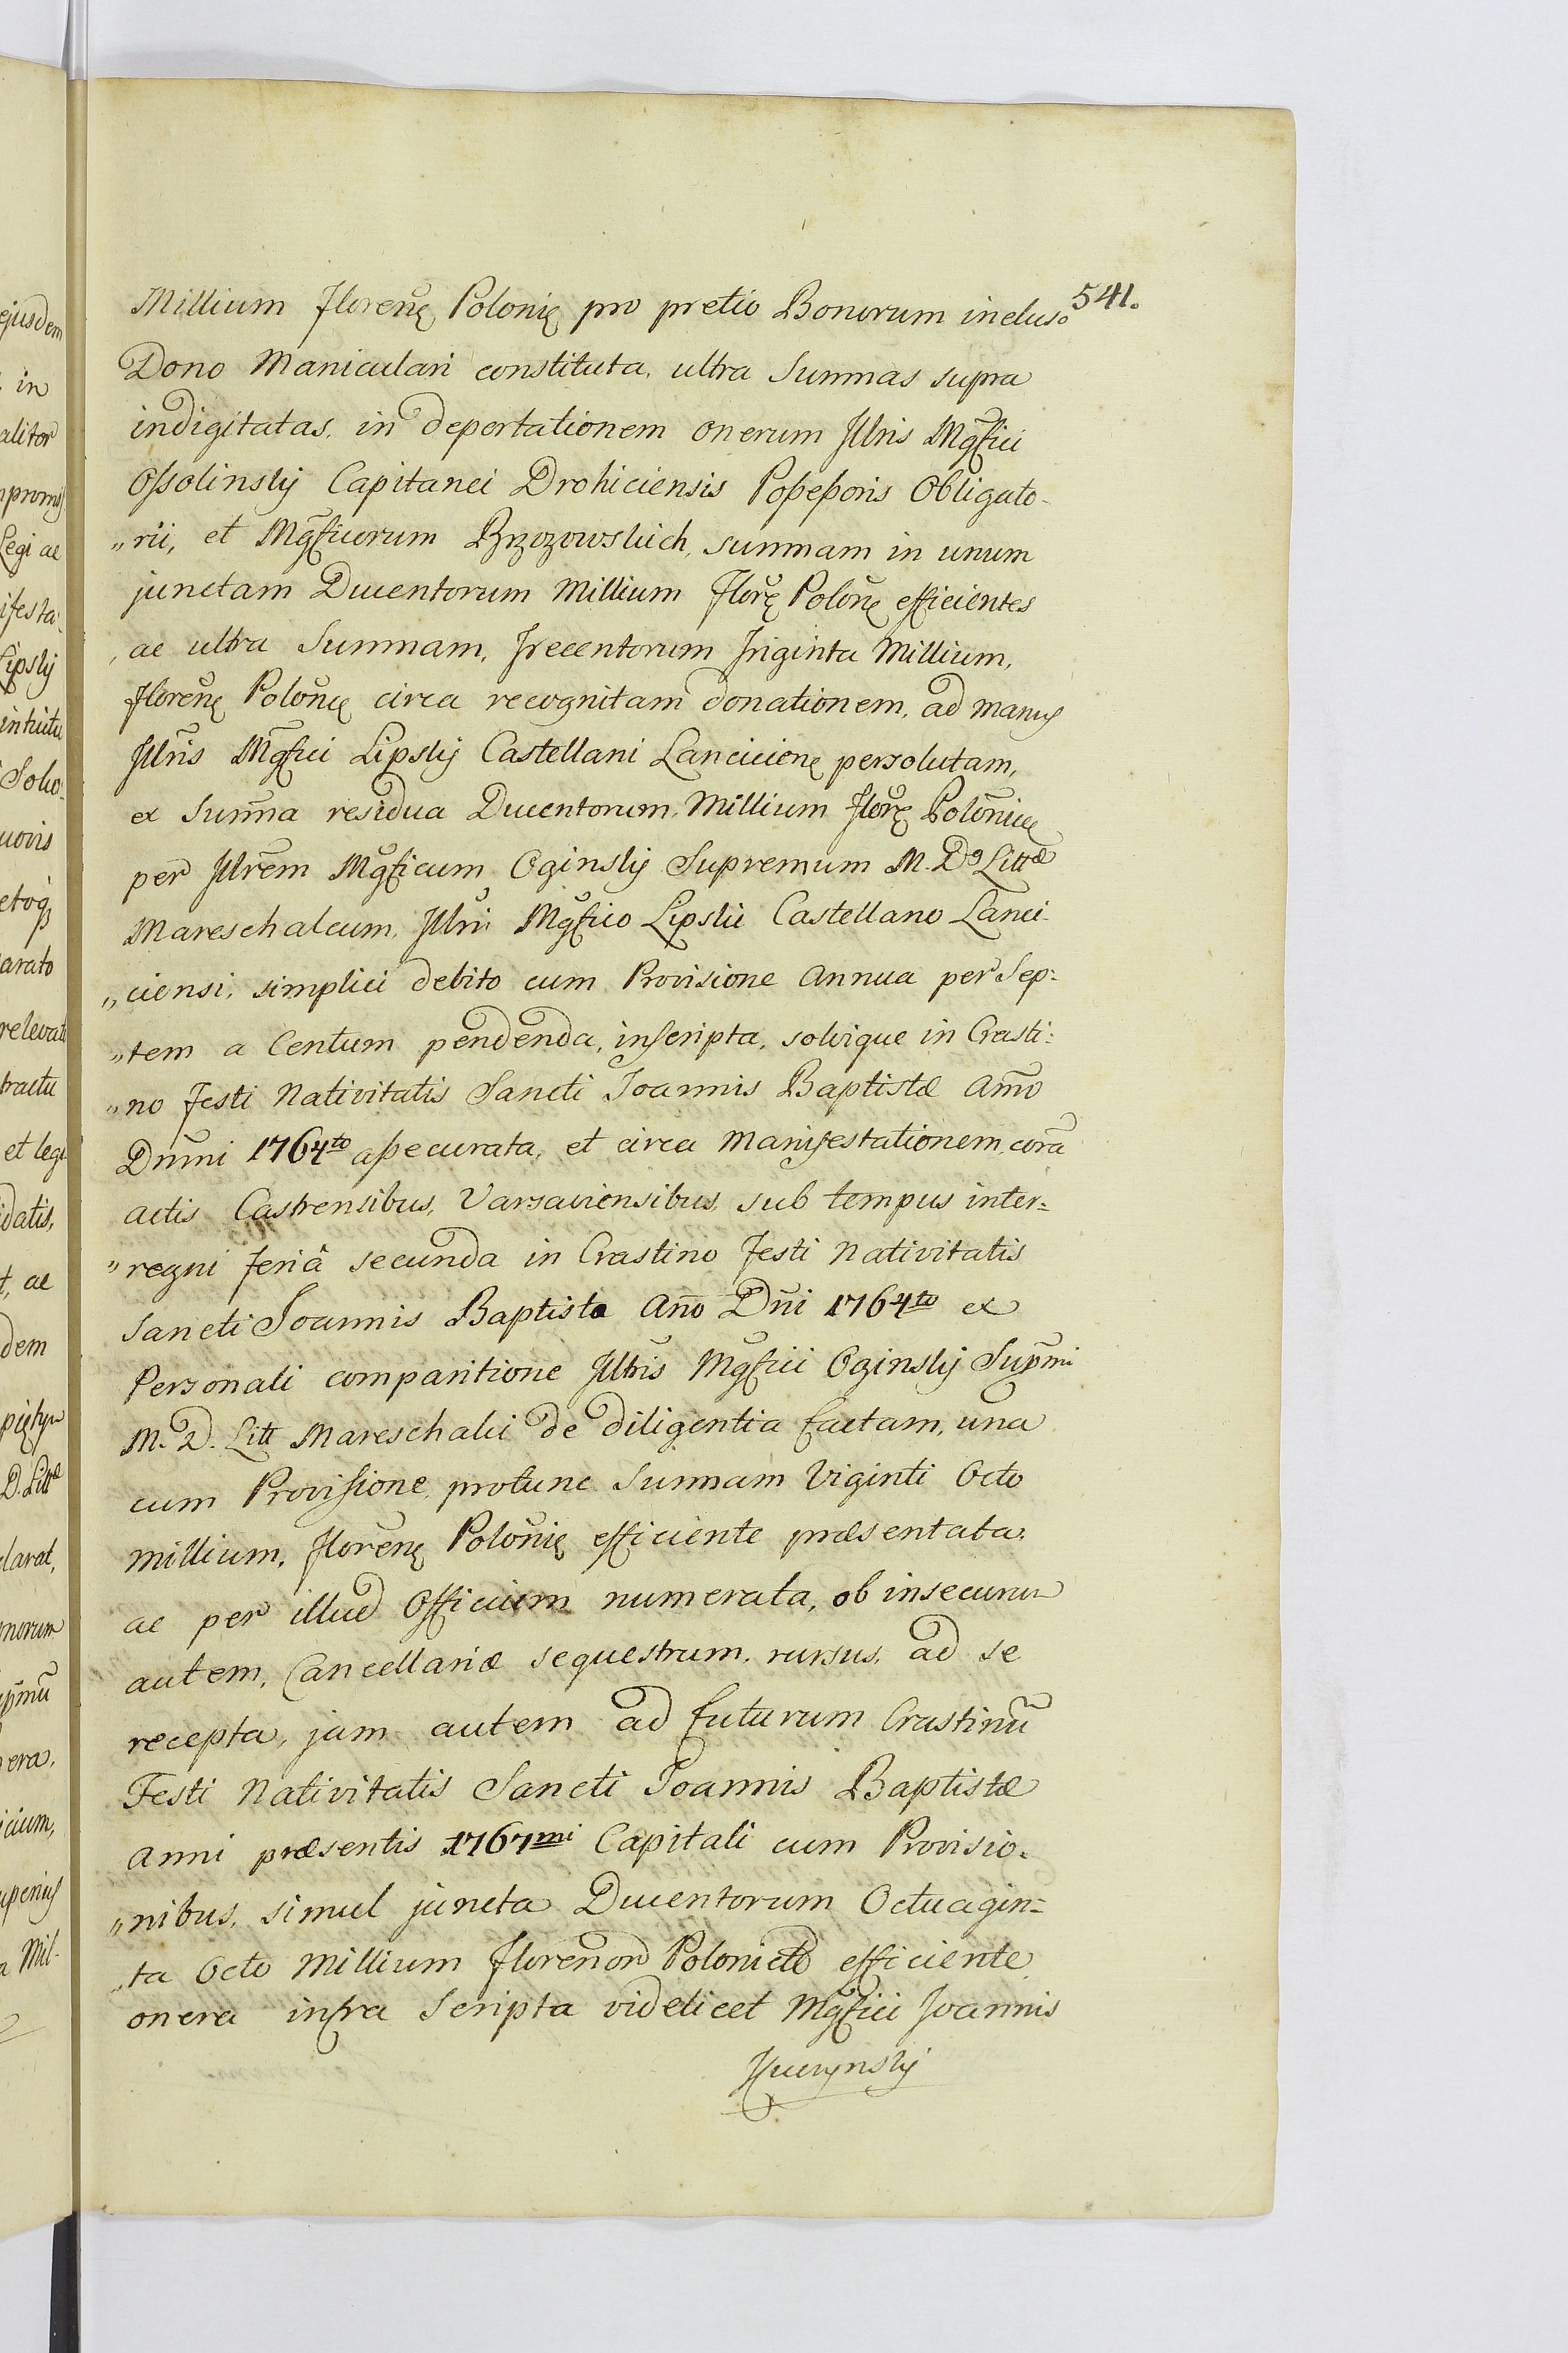 541.
Millium florenę Polonię pro pretio Bonorum incluso
Dono Maniculari constituta, ultra Summas supra
indigitatas, in deportationem onerum Jllris Mgfici
Ossolinskij Capitanei Drohiciensis Possessoris Obligato-
„rii, et Mgficorum Brzozowskich, summam in unum
junctam Ducentorum Millium florę Polonę efficientes
ac ultra Summam, Trecentorum Triginta Millium,
florenę Polonię circa recognitam donationem, ad manus
Jllris Mgfici Lipskij Castellani Lancicienę persolutam,
ex Summa residua Ducentorum Millium florę Polonicę
per Jllrem Mgficum Oginskij Supremum M. D. Littæ
Mareschalcum, Jllri Mgfico Lipskii Castellano Lanci-
„ciensi, simplici debito cum Provisione annua per Sep:
„tem a Centum pendenda, inscripta, solvique in Crasti:
„no Festi Nativitatis Sancti Joannis Baptistæ Anno
Dnni 1764to assecurata, et circa Manifestationem, corã
actis Castrensibus, Varsaviensibus, sub tempus inter=
„regni feriâ secunda in Crastino Festi Nativitatis
Sancti Joannis Baptista Año Dñi 1764to ex
Personali comparitione Jllris Mgfici Oginskij Supmi
M. D. Litt Mareschalci de diligentia factam, una
cum Provisione protunc Summam Viginti Octo
millium, florenę Polonię efficiente præsentata,
ac per illud Officium numerata, ob insecurum
autem, Cancellariæ sequestrum, rursus, ad se
recepta, jam autem ad futurum Crastinũ
Festi Nativitatis Sancti Joannis Baptistæ
anni præsentis 1767mi Capitali cum Provisio-
„nibus, simul juncta Ducentorum Octuagin=
„ta Octo Millium florenor Polonicał efficiente
onera infra Scripta videlicet Mgfici Joannis